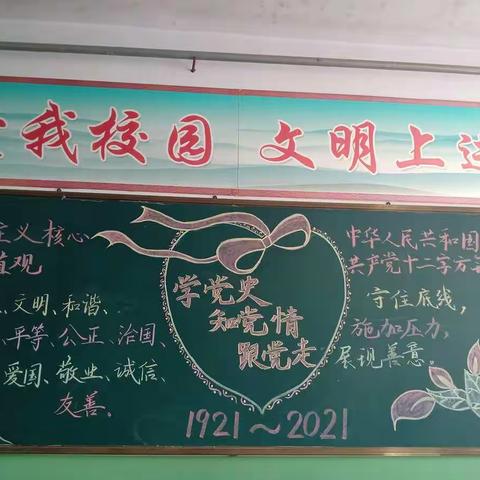 我校园 文明上进
主义核心
值观
文明、和谐、
平等、公正、治国、
爱国、敬业、诚信、
友善。
学党史
知党情
跟党走
1921~2021
中华人民共和国
共产党十二字方
守住底线,
施加压力,
展现善意。